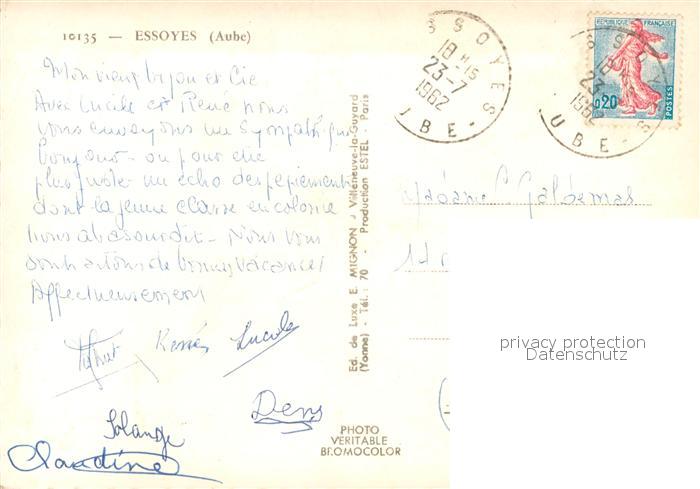 10135 — ESSOYES (Aube)
Mon vieux bijou et Cie
Avec Lucile et René nous
vous envoyons un sympathique
bonjour - ou pour être
plus juste un écho des pépiements
dont la jeune classe en colonie
nous abasourdit - Nous vous
souhaitons de bonnes vacances
Affectueusement
René Lucile
Denys
Solange
Claudine
Ed. de Luxe E. MIGNON - Villeneuve-la-Guyard
(Yonne) - Tél. : 70 - Production ESTEL - Paris
PHOTO
VERITABLE
BROMOCOLOR
ESSOYES
18 H 15
23-7
1962
AUBE
REPUBLIQUE FRANÇAISE
0,20
POSTES
23
1962
UBE - S
Madame Galdemas
privacy protection
Datenschutz